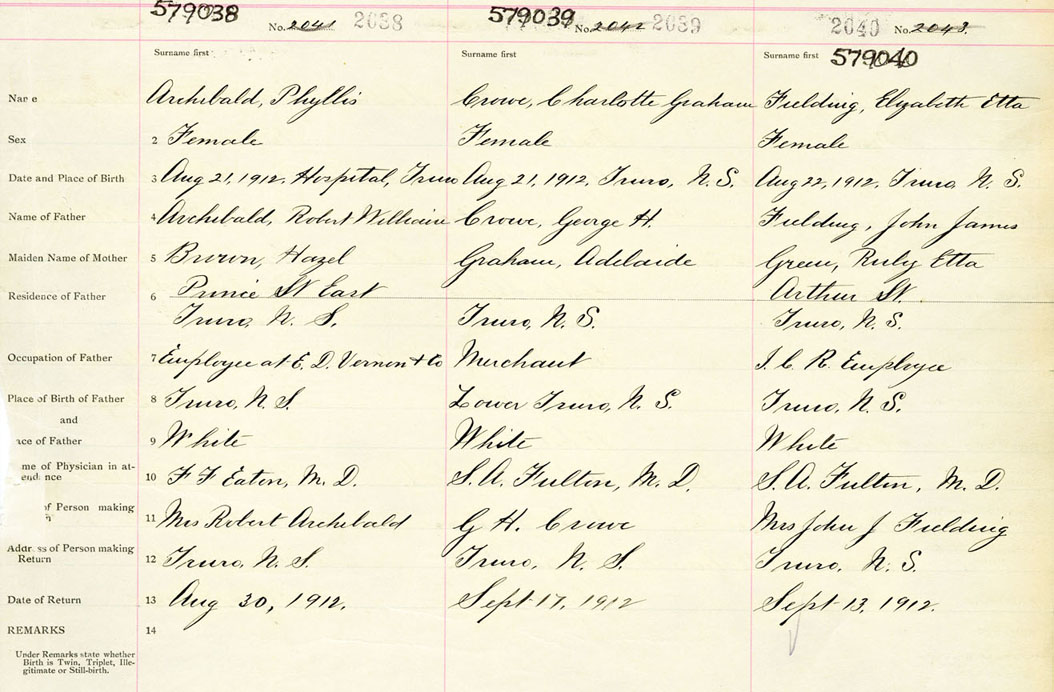 579038 579039
No. 2041 2038 No. 2042 2039 2040 No. 2043.
Surname first Surname first Surname first 579040
Archibald, Phyllis Crowe, Charlotte Graham Fielding, Elizabeth Etta
Sex 2 Female Female Female
Date and Place of Birth 3 Aug 21, 1912, Hospital, Truro Aug 21, 1912, Truro, N. S. Aug 22, 1912, Truro N. S.
Name of Father 4 Archibald, Robert William Crowe, George H. Fielding, John James
Maiden Name of Mother 5 Brown, Hazel Graham, Adelaide Green, Ruby Etta
Residence of Father 6 Prince St East Arthur St.
Truro, N. S. Truro, N. S. Truro, N. S.
Occupation of Father 7 Employee at E. D. Vernon + Co Merchant I. C. R. Employee
Place of Birth of Father 8 Truro, N. S. Lower Truro, N. S. Truro, N. S.
and
ace of Father 9 White White White
me of Physician in at-
10 F F Eaton, M. D. S. A. Fulton, M. D. S. A. Fulton, M. D.
of Person making
11 Mrs Robert Archibald G H. Crowe Mrs John J Fielding
Addr ss of Person making
Return 12 Truro, N. S. Truro, N. S. Truro, N. S.
Date of Return 13 Aug 30, 1912. Sept 17, 1912 Sept 13, 1912.
REMARKS 14
Under Remarks state whether
Birth is Twin, Triplet, Ille-
gitimate or Still-birth.